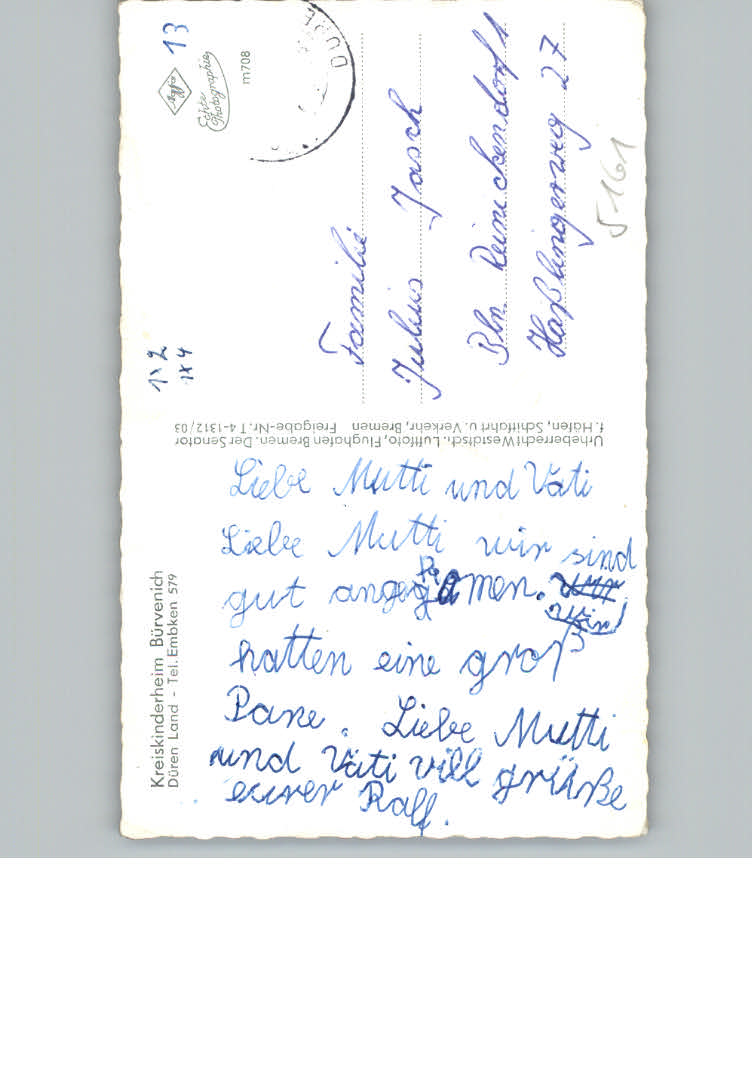 Kreiskinderheim Bürvenich
Düren Land - Tel. Embken 579
Liebe Mutti und Vati
Liebe Mutti wir sind
gut angekomen. wir
wir
hatten eine groß
Pane. Liebe Mutti
und Vati vill grüße
eurer Ralf.
Urheberrecht Westdtsch. Luftfoto, Flughafen Bremen. Der Senator
f. Häfen, Schiffahrt u. Verkehr, Bremen Freigabe-Nr. T 4-1312/03
1x2
1x4
13
Agfa
Echte
Photographie
m708
DÜRE
Familie
Julius Jasch
Bln. Reinickendorf 1
Haßlingerweg 27
5161